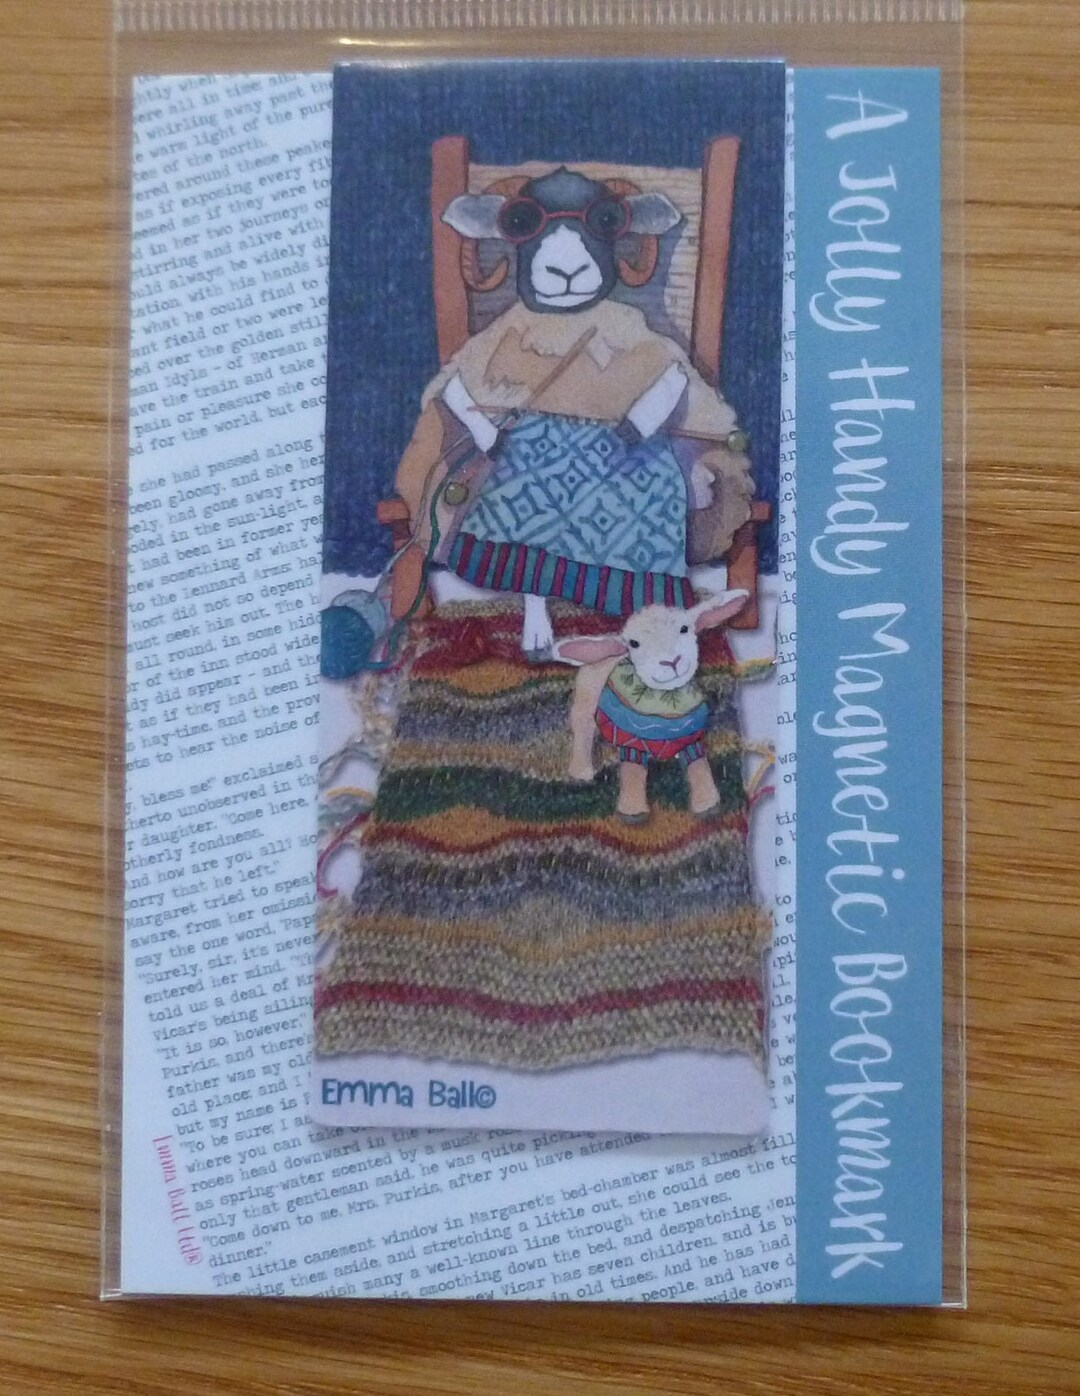 A Jolly Handy Magnetic Bookmark
Emma Ball©
Emma Ball Ltd®
whirling away past the
warm light of the pure
of the north.
around these peake
as if exposing every fi
as if they were to
in her two journeys or
stirring and alive with
always be widely di
with his hands in
what he could find to
field or two were le
over the golden still
Idyls - of Herman a
the train and take
pain or pleasure she co
for the world, but eac
she had passed along
been gloomy, and she her
had gone away from
in the sun-light, a
had been in former yea
something of what w
to the Lennard Arms; hal
host did not so depend
must seek him out. The h
all round, in some hid
of the inn stood wide
did appear - and the
as if they had been in
hay-time, and the prov
to hear the noise of
bless me!" exclaimed a
unobserved in th
daughter, "Come here,
fondness.
And how are you all? Ho
sorry that he left."
Margaret tried to speak
aware, from her omissi
say the one word, "Papa
"Surely, sir, it's never
entered her mind. "Th
told us a deal of Mrs
Vicar's being ailing
"It is so, however,"
Purkis, and there's
father was my old
old place; and I
but my name is
"To be sure; I a
where you can take
roses head downward in the
as spring-water scented by a musk rose
only that gentleman said, he was quite picking
"Come down to me, Mrs. Purkis, after you have attended
dinner."
The little casement window in Margaret's bed-chamber was almost fill
them aside, and stretching a little out, she could see the to
many a well-known line through the leaves.
smoothing down the bed, and despatching Jen
new Vicar has seven children, and is bu
in old times. And he has had
people, and have d
down